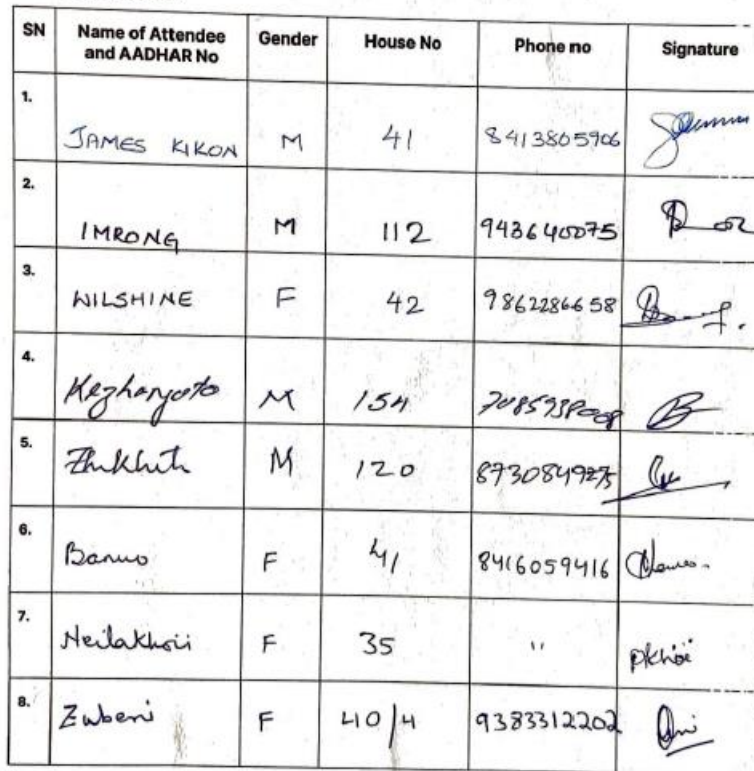 SN Name of Attendee and AADHAR No Gender House No Phone no Signature
1. JAMES KIKON M 41 8413805906
2. IMRONG M 112 943640075
3. WILSHINE F 42 9862286658
4. Kezhanyoto M 154
5. M 120 8730849275
6. Banuo F 41 8416059416
7. Neilakhoii F 35 "
8. Zubeni F 40/4 9383312202